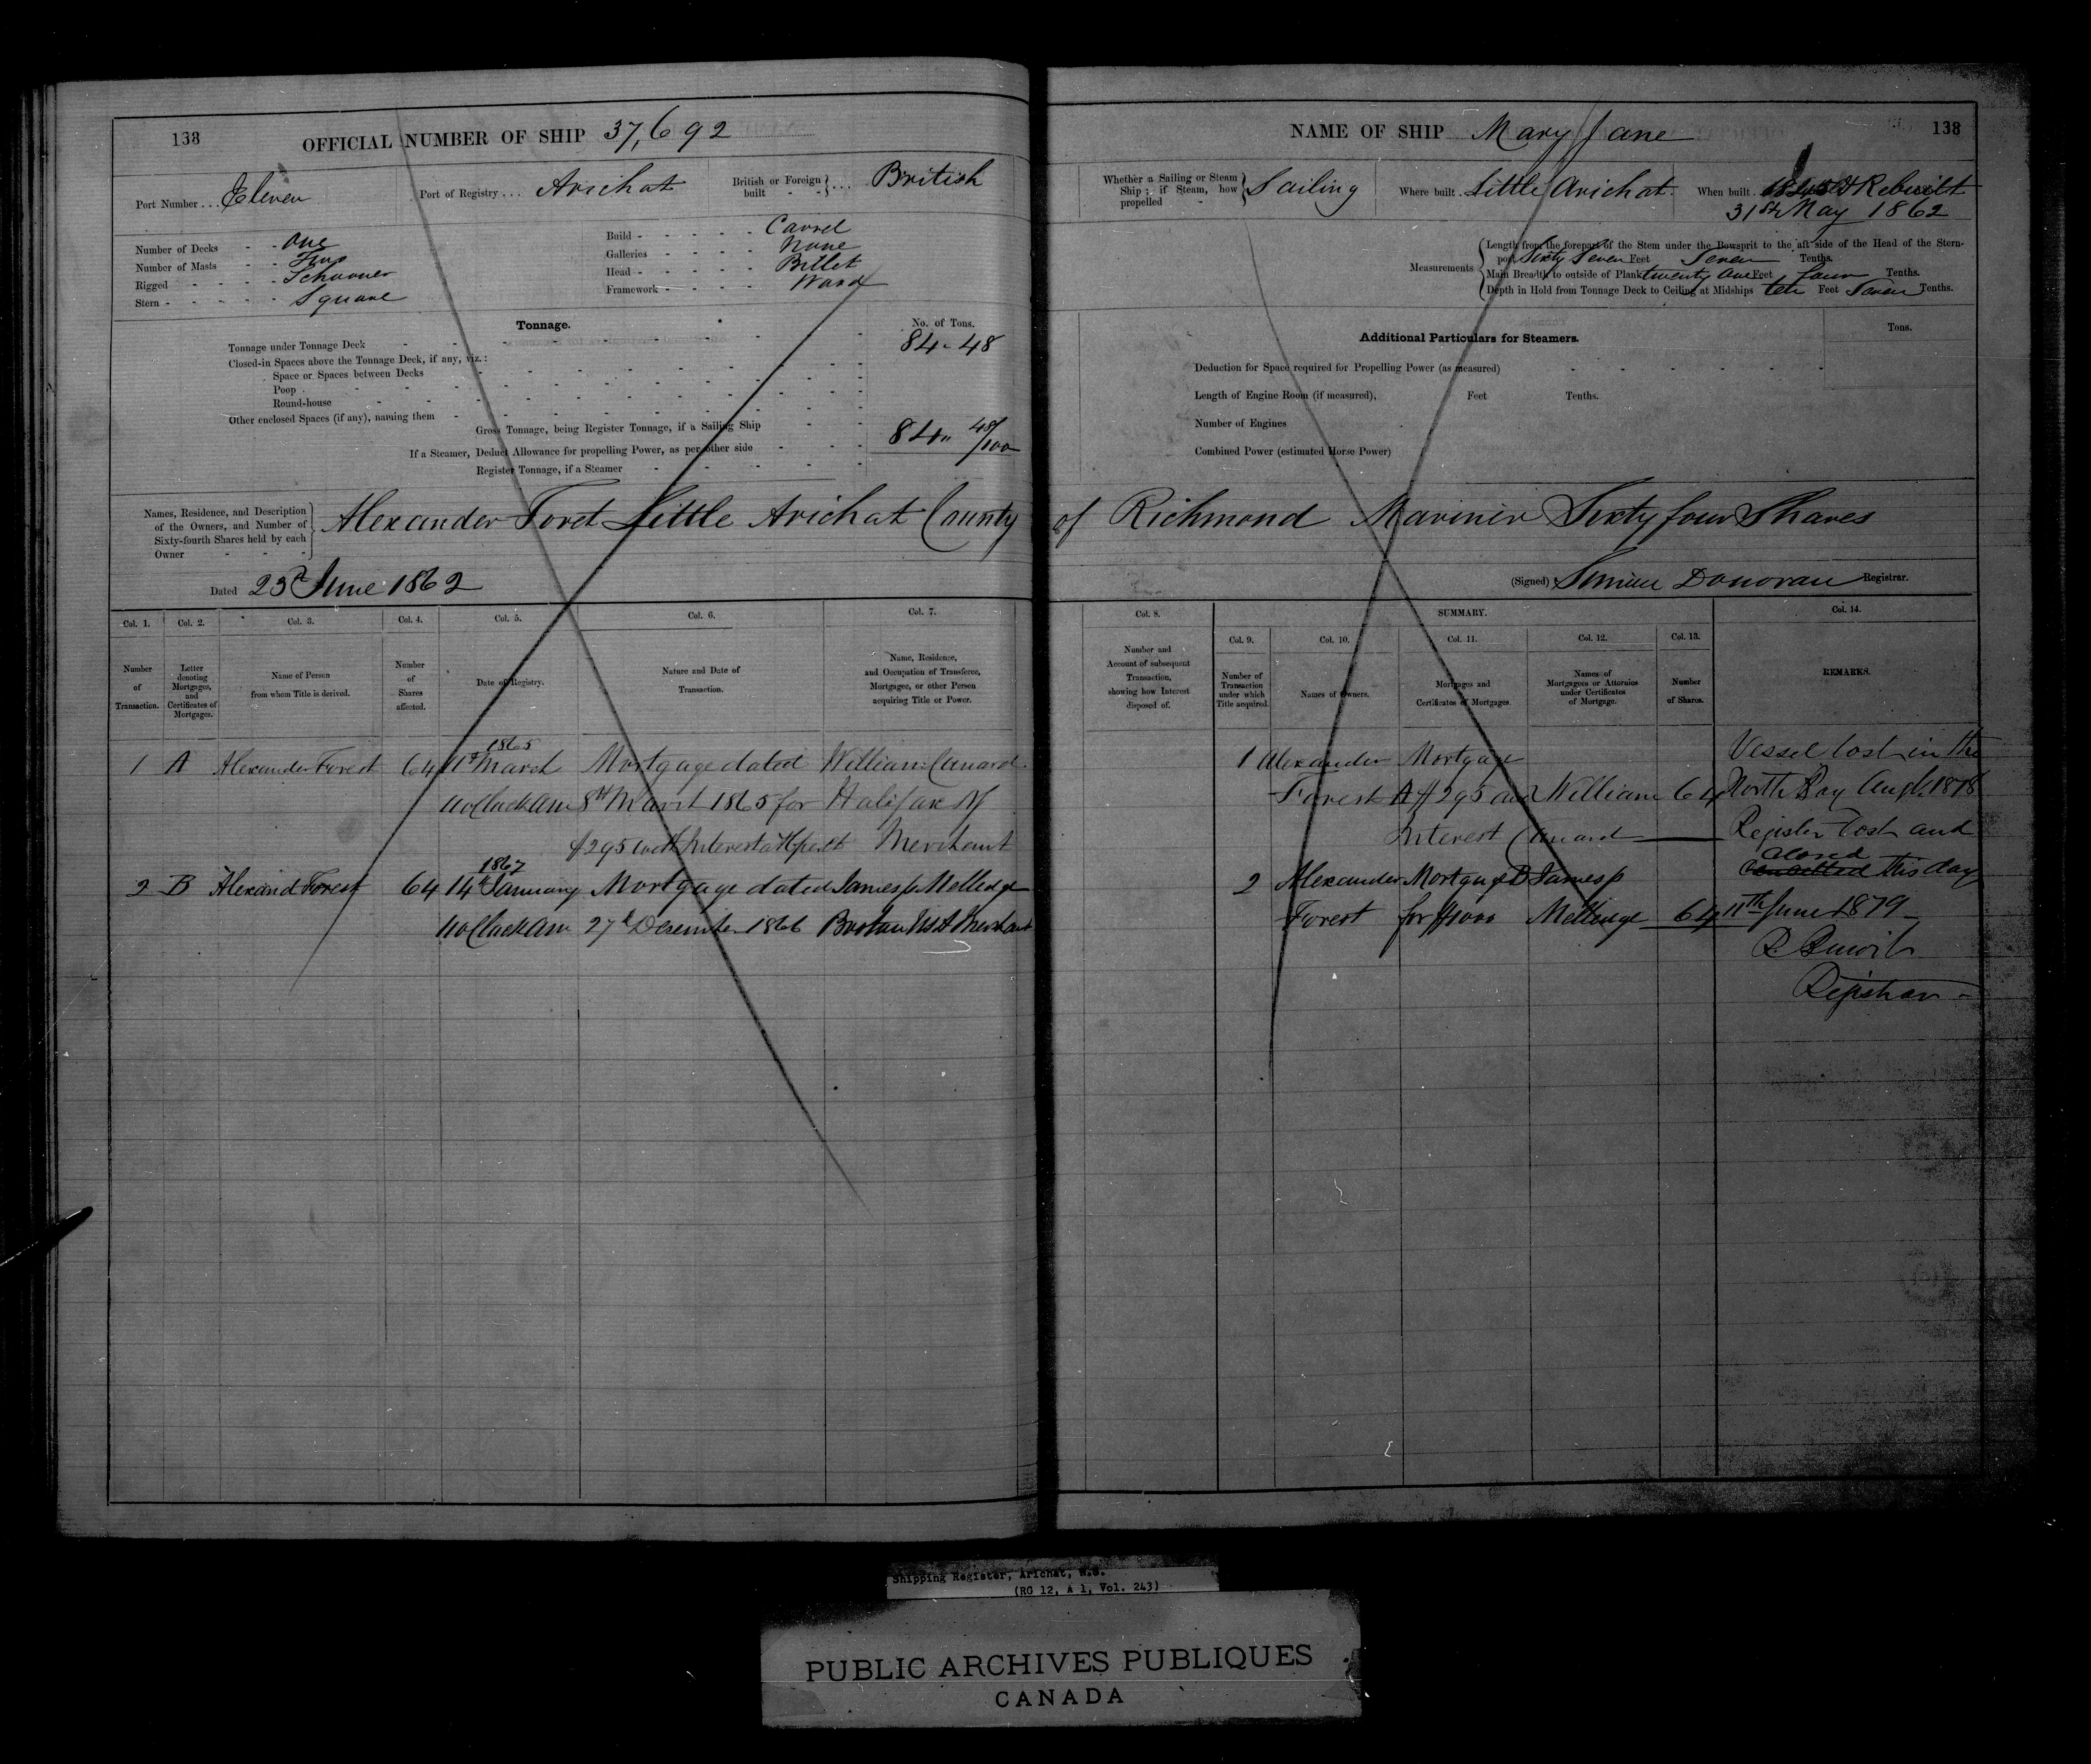 138 OFFICIAL NUMBER OF SHIP 37,692
Port Number . . . Eleven Port of Registry . . . Arichat British or Foreign built - - } . . . British
Number of Decks - - One
Number of Masts - - Two
Rigged - - - - Schooner
Stern - - - - - Square
Build - - - - - Carvel
Galleries - - - - None
Head - - - - - Billet
Framework - - - - Wood
Tonnage. No. of Tons.
Tonnage under Tonnage Deck 84.48
Closed-in Spaces above the Tonnage Deck, if any, viz.:
Space or Spaces between Decks
Poop
Round-house
Other enclosed Spaces (if any), naming them
Gross Tonnage, being Register Tonnage, if a Sailing Ship 84" 48/100
If a Steamer, Deduct Allowance for propelling Power, as per other side
Register Tonnage, if a Steamer
Names, Residence, and Description
of the Owners, and Number of
Sixty-fourth Shares held by each
Owner
Alexander Foret Little Arichat County
Dated 23d June 1862
Col. 1. Col. 2. Col. 3. Col. 4. Col. 5. Col. 6. Col. 7.
Number of Transaction.
Letter denoting Mortgages, and Certificates of Mortgages.
Name of Person from whom Title is derived.
Number of Shares affected.
Date of Registry.
Nature and Date of Transaction.
Name, Residence, and Occupation of Transferee, Mortgagee, or other Person acquiring Title or Power.
1865
1 A Alexander Forest 64 March Mortgage dated William Cunard
11 oClock Am 8th March 1865 for Halifax
$295 with Interest Merchant
1867
2 B Alexand Forest 64 14th January Mortgage dated James p Melledge
11 oClock Am 27th December 1866 Boston USA Merchant
NAME OF SHIP Mary Jane 138
Whether a Sailing or Steam Ship ; if Steam, how propelled - } Sailing Where built Little Arichat When built Rebuilt
31st May 1862
Measurements
Length from the forepart of the Stem under the Bowsprit to the aft side of the Head of the Stern-
post Sixty Seven Feet Seven Tenths.
Main Breadth to outside of Plank twenty One Feet four Tenths.
Depth in Hold from Tonnage Deck to Ceiling at Midships ten Feet Seven Tenths.
Additional Particulars for Steamers. Tons.
Deduction for Space required for Propelling Power (as measured)
Length of Engine Room (if measured), Feet Tenths.
Number of Engines
Combined Power (estimated Horse Power)
of Richmond Mariner Sixty four Shares
(Signed) Donovan Registrar.
Col. 8. SUMMARY. Col. 14.
Col. 9. Col. 10. Col. 11. Col. 12. Col. 13.
Number and Account of subsequent Transaction, showing how Interest disposed of.
Number of Transaction under which Title acquired.
Names of Owners.
Mortgages and Certificates of Mortgages.
Names of Mortgagees or Attornies under Certificates of Mortgage.
Number of Shares.
REMARKS.
1 Alexander Mortgage Vessel lost in the
Forest A $295 and William 64 North Bay Augt. 1878
Interest Cunard Register lost and
closed
cancelled this day
2 Alexander Mortgage B James p
Forest for $1000 Melledge 64 11th June 1879
Registrar
Shipping Register, Arichat, N.S.
(RG 12, A 1, Vol. 243)
PUBLIC ARCHIVES PUBLIQUES
CANADA